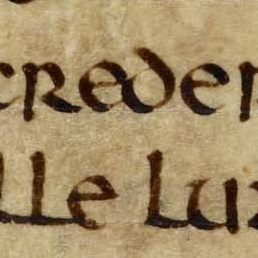 creder
lle lux